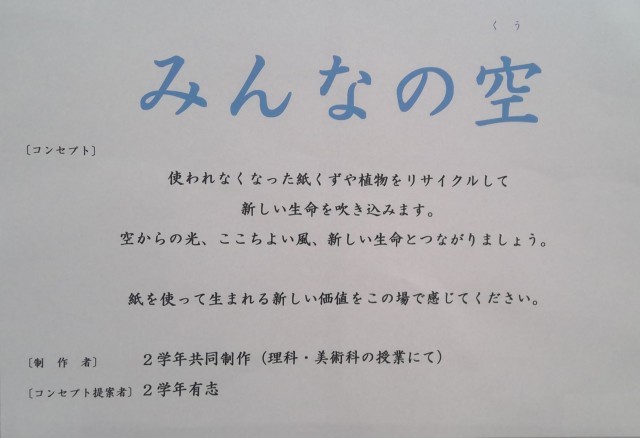 くう
みんなの空
〔コンセプト〕
使われなくなった紙くずや植物をリサイクルして
新しい生命を吹き込みます。
空からの光、ここちよい風、新しい生命とつながりましょう。
紙を使って生まれる新しい価値をこの場で感じてください。
〔制 作 者〕 2学年共同制作（理科・美術科の授業にて）
〔コンセプト提案者〕2学年有志